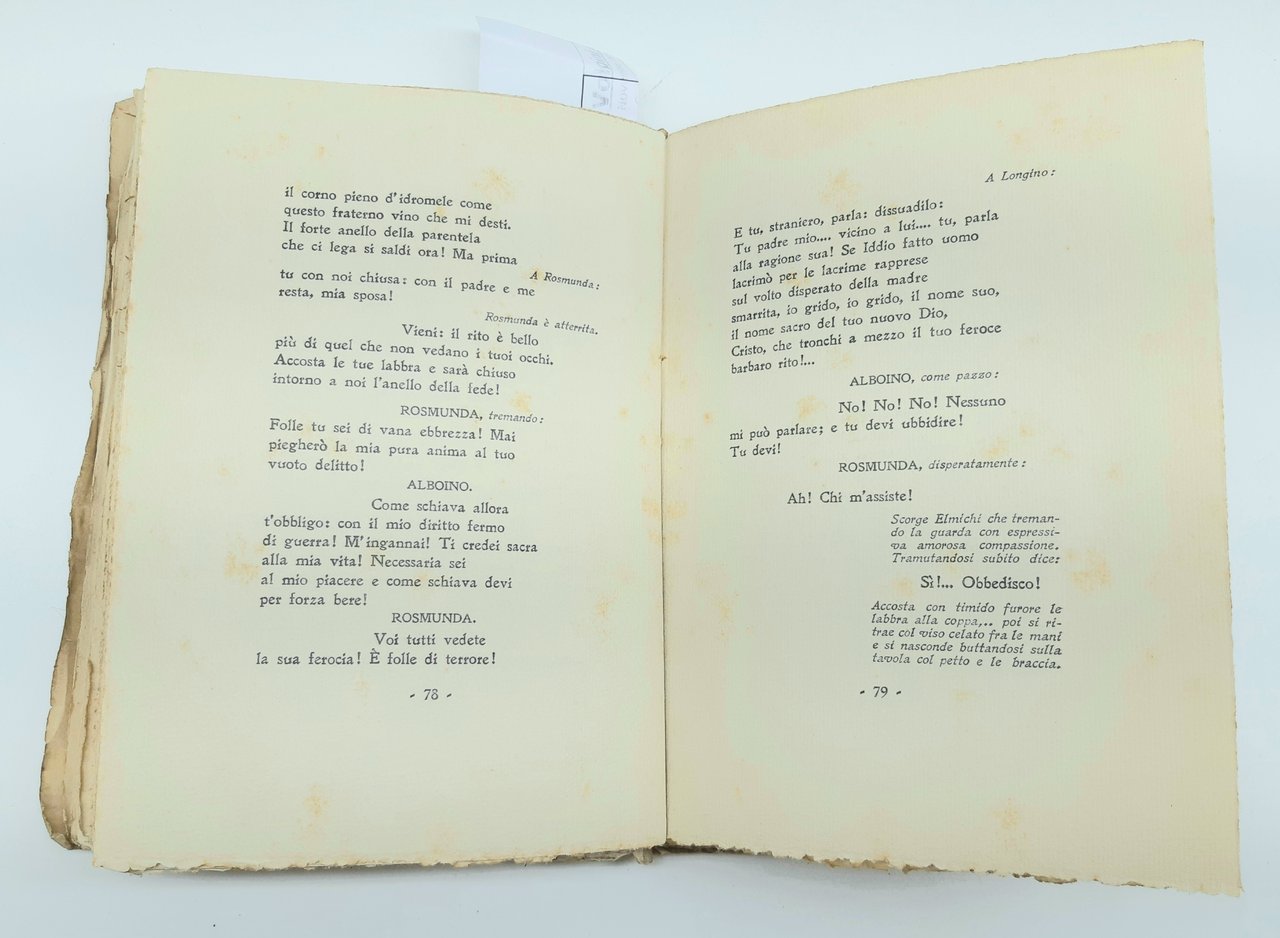 il corno pieno d'idromele come
questo fraterno vino che mi desti.
Il forte anello della parentela
che ci lega si saldi ora! Ma prima
A Rosmunda:
tu con noi chiusa: con il padre e me
resta, mia sposa!
Rosmunda è atterrita.
Vieni: il rito è bello
più di quel che non vedano i tuoi occhi.
Accosta le tue labbra e sarà chiuso
intorno a noi l'anello della fede!
ROSMUNDA, tremando:
Folle tu sei di vana ebbrezza! Mai
piegherò la mia pura anima al tuo
vuoto delitto!
ALBOINO.
Come schiava allora
t'obbligo: con il mio diritto fermo
di guerra! M'ingannai! Ti credei sacra
alla mia vita! Necessaria sei
al mio piacere e come schiava devi
per forza bere!
ROSMUNDA.
Voi tutti vedete
la sua ferocia! È folle di terrore!
- 78 -
A Longino:
E tu, straniero, parla: dissuadilo:
Tu padre mio.... vicino a lui.... tu, parla
alla ragione sua! Se Iddio fatto uomo
lacrimò per le lacrime rapprese
sul volto disperato della madre
smarrita, io grido, io grido, il nome suo,
il nome sacro del tuo nuovo Dio,
Cristo, che tronchi a mezzo il tuo feroce
barbaro rito!...
ALBOINO, come pazzo:
No! No! No! Nessuno
mi può parlare; e tu devi ubbidire!
Tu devi!
ROSMUNDA, disperatamente:
Ah! Chi m'assiste!
Scorge Elmichi che treman-
do la guarda con espressi-
va amorosa compassione.
Tramutandosi subito dice:
Sì!... Obbedisco!
Accosta con timido furore le
labbra alla coppa,.. poi si ri-
trae col viso celato fra le mani
e si nasconde buttandosi sulla
tavola col petto e le braccia.
- 79 -